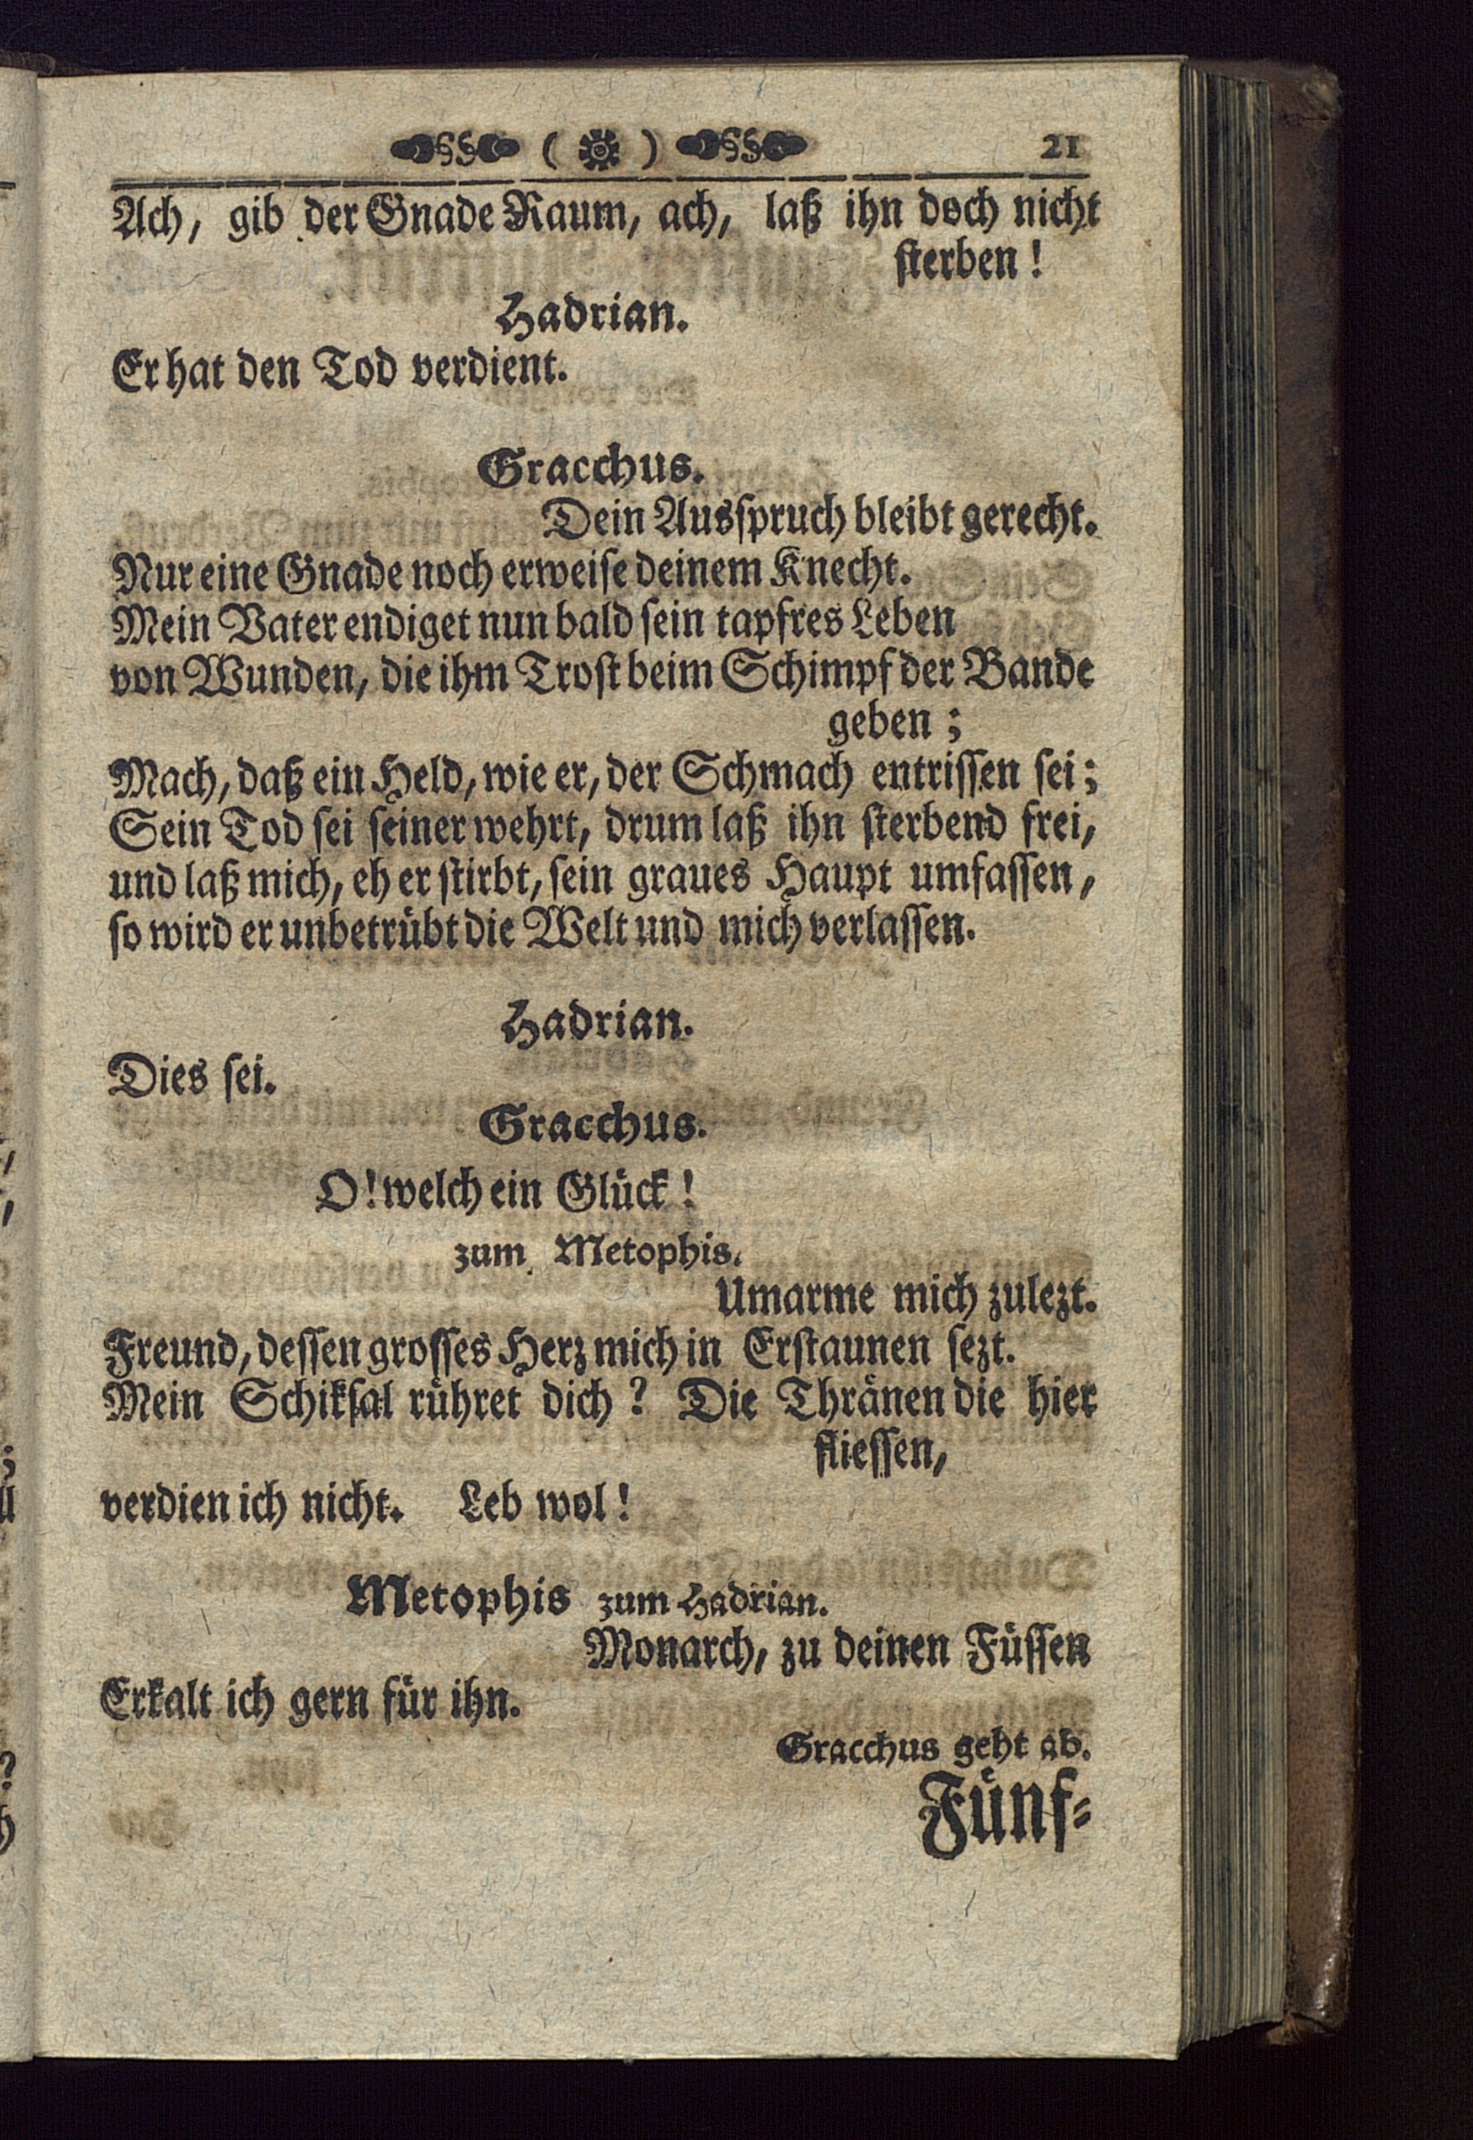 §§ ( ) §§ 21
Ach, gib der Gnade Raum, ach, laß ihn doch nicht
sterben!
Hadrian.
Er hat den Tod verdient.
Gracchus.
Dein Ausspruch bleibt gerecht.
Nur eine Gnade noch erweise deinem Knecht.
Mein Vater endiget nun bald sein tapfres Leben
von Wunden, die ihm Trost beim Schimpf der Bande
geben;
Mach, daß ein Held, wie er, der Schmach entrissen sei;
Sein Tod sei seiner wehrt, drum laß ihn sterbend frei,
und laß mich, eh er stirbt, sein graues Haupt umfassen,
so wird er unbetrübt die Welt und mich verlassen.
Hadrian.
Dies sei.
Gracchus.
O! welch ein Glück!
zum Metophis.
Umarme mich zulezt.
Freund, dessen grosses Herz mich in Erstaunen sezt.
Mein Schiksal rühret dich? Die Thränen die hier
fliessen,
verdien ich nicht. Leb wol!
Metophis zum Hadrian.
Monarch, zu deinen Füssen
Erkalt ich gern für ihn.
Gracchus geht ab.
Fünf-